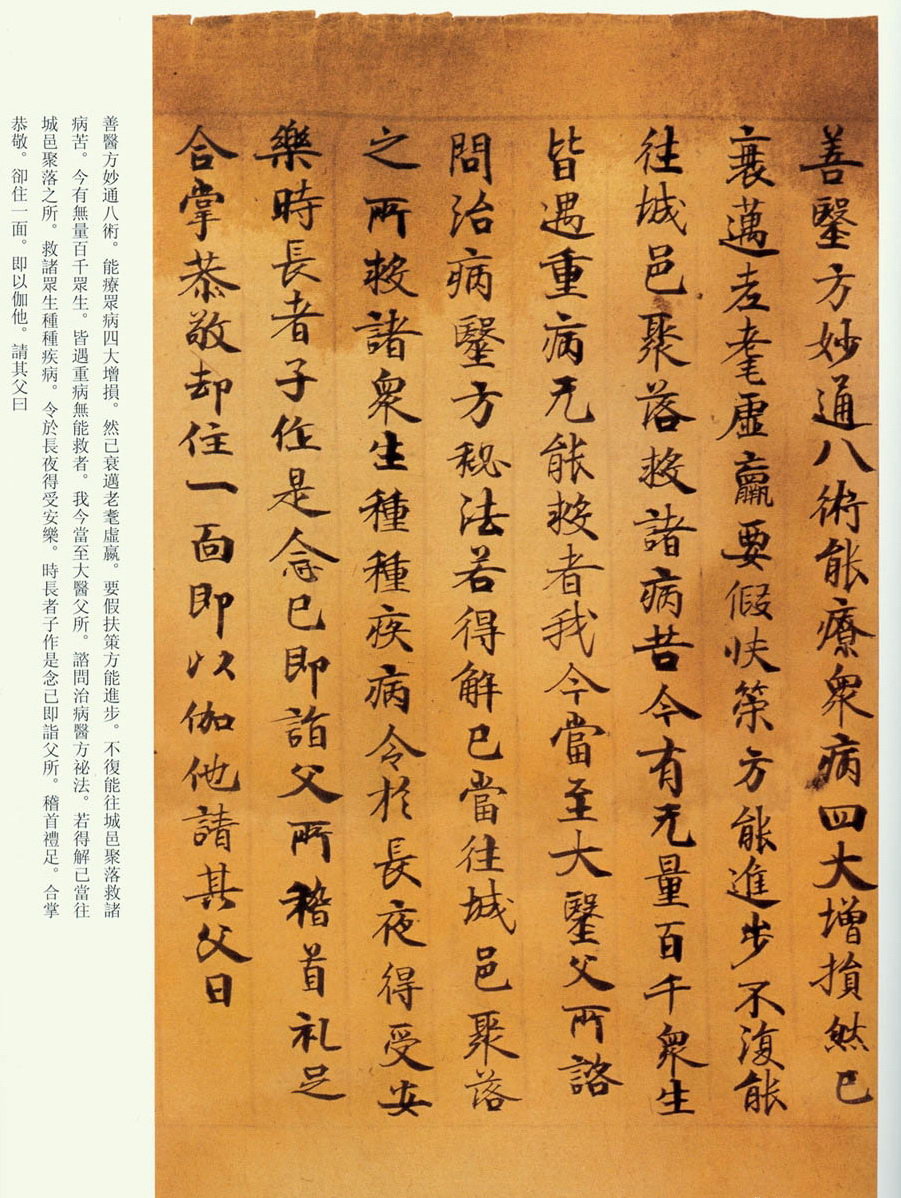 善毉方妙通八術能療衆病四大増損然已
衰邁老耄虛羸要假扶策方能進步不復能
往城邑聚落救諸病苦今有无量百千衆生
皆遇重病无能救者我今當至大毉父所諮
問治病毉方秘法若得解已當往城邑聚落
之所救諸衆生種種疾病令於長夜得受安
樂時長者子作是念已即詣父所稽首礼足
合掌恭敬却住一面即以伽他請其父曰
善醫方妙通八術。能療眾病四大增損。然己衰邁老耄虛羸。要假扶策方能進步。不復能往城邑聚落救諸
病苦。今有無量百千眾生。皆遇重病無能救者。我今當至大醫父所。諮問治病醫方祕法。若得解己當往
城邑聚落之所。救諸眾生種種疾病。令於長夜得受安樂。時長者子作是念己即詣父所。稽首禮足。合掌
恭敬。卻住一面。即以伽他。請其父曰